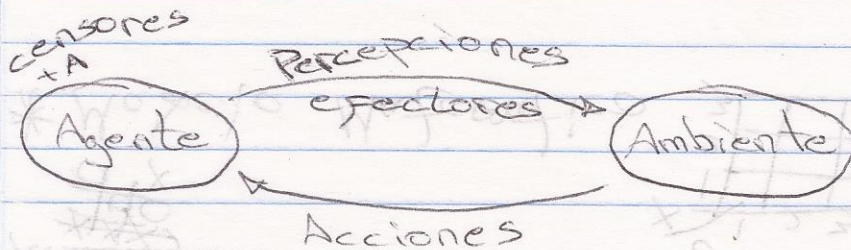 censores
+A
Percepciones
efectores
Agente
Ambiente
Acciones